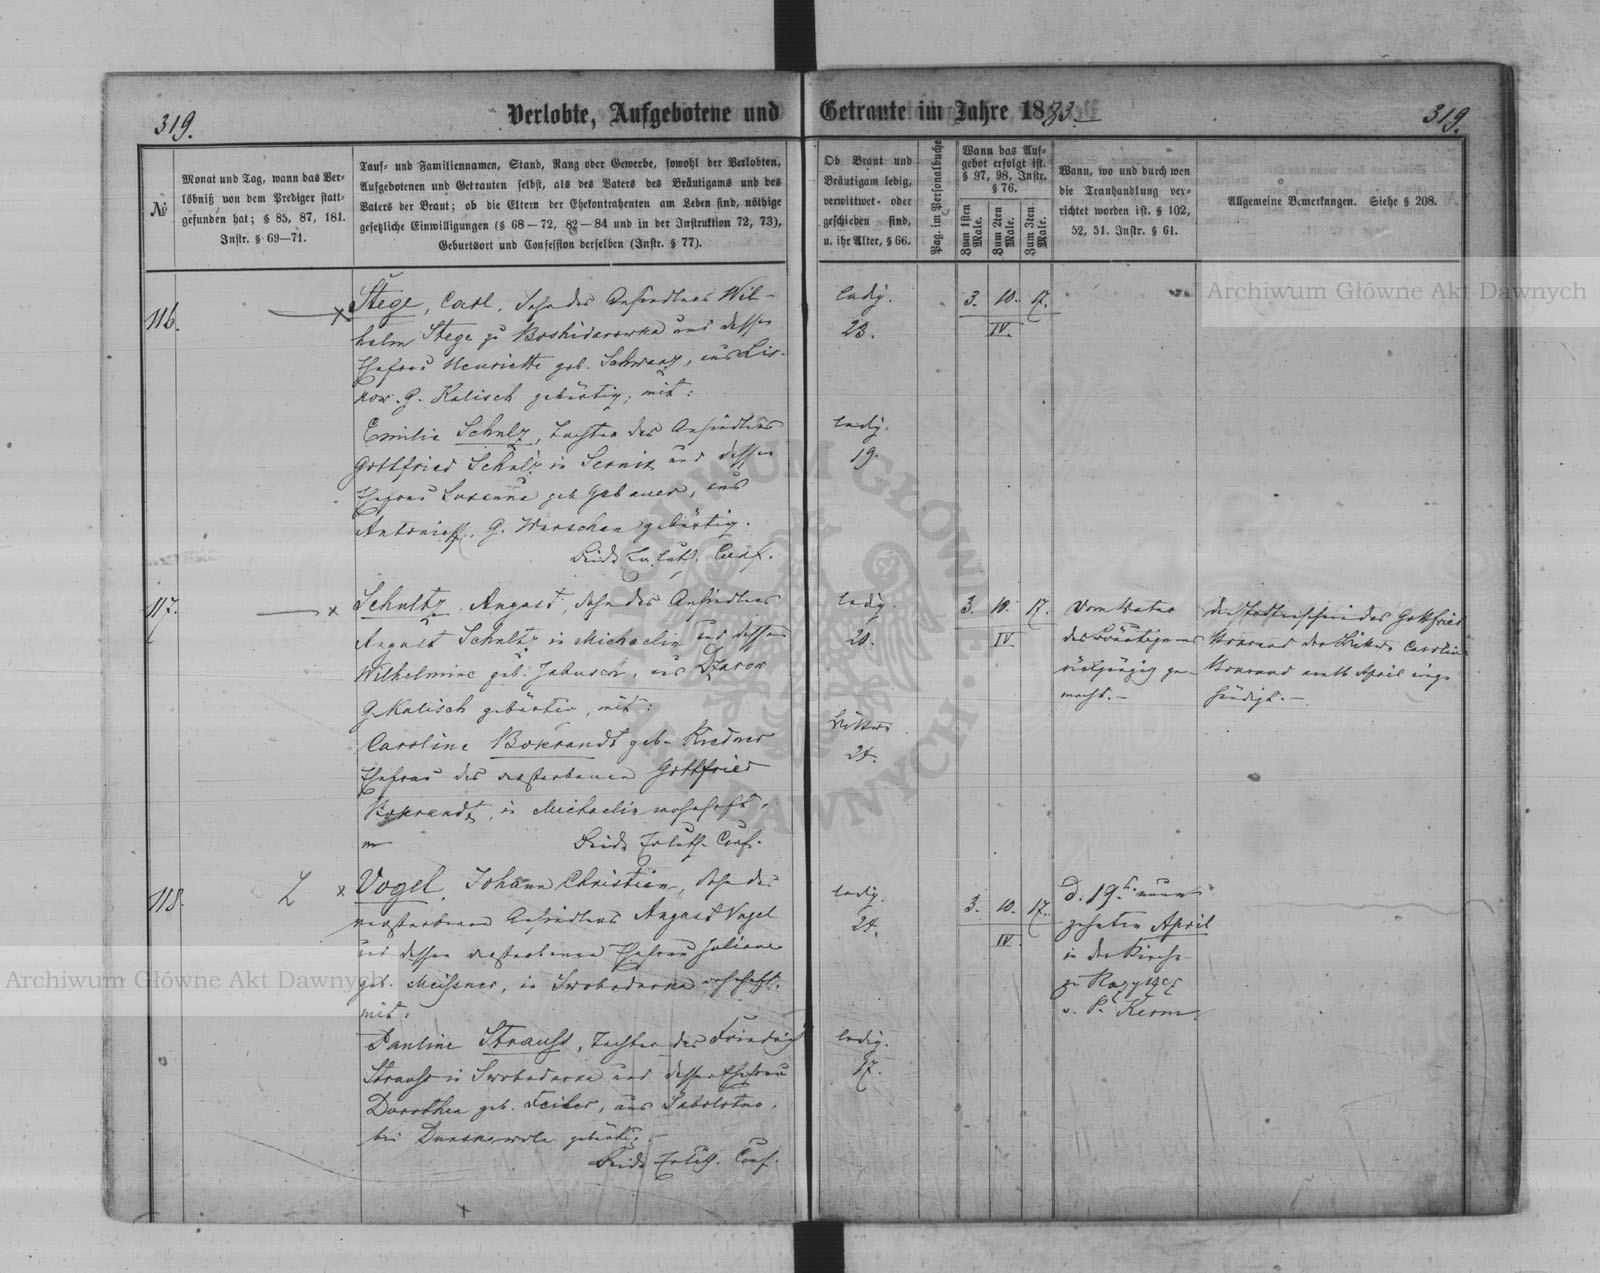 319.
Verlobte, Aufgebotene und Getraute im Jahre 1883.
319.
№
Monat und Tag, wann das Ver-
löbniß von dem Prediger statt-
gefunden hat; § 85, 87, 181.
Instr. § 69—71.
Tauf- und Familiennamen, Stand, Rang oder Gewerbe, sowohl der Verlobten,
Aufgebotenen und Getrauten selbst, als des Vaters des Bräutigams und des
Vaters der Braut; ob die Eltern der Ehekontrahenten am Leben sind, nöthige
gesetzliche Einwilligungen (§ 68—72, 82—84 und in der Instruktion 72, 73),
Geburtsort und Confession derselben (Instr. § 77).
Ob Braut und
Bräutigam ledig,
verwittwet- oder
geschieden sind,
u. ihr Alter, § 66.
Pag. im Personalbuche
Wann das Auf-
gebot erfolgt ist.
§ 97, 98, Instr.
§ 76.
Zum 1sten
Male.
Zum 2ten
Male.
Zum 3ten
Male.
Wann, wo und durch wen
die Trauhandlung ver-
richtet worden ist. § 102,
52, 51. Instr. § 61.
Allgemeine Bemerkungen. Siehe § 208.
116.
Stege, Carl, Sohn des Ansiedlers Wil-
helm Stege zu Boshidarowka und dessen
Ehefrau Henriette geb. Schwarz, aus Lis-
kow. G. Kalisch gebürtig, mit:
Emilie Schulz, Tochter des Ansiedlers
Gottfried Schulz in Sernik und dessen
Ehefrau Susanna geb Gebauer, aus
G. Warschau gebürtig.
Beide Ev. luth. Conf.
ledig.
23.
ledig.
19.
3. 10. 17.
IV.
117.
Schultz, August, Sohn des Ansiedlers
August Schultz in Michaelin und dessen
Wilhelmine geb. Jabusch, aus
G. Kalisch gebürtig, mit:
Caroline Bokrandt geb.
Ehefrau des verstorbenen Gottfried
Bokrandt, in Michaelin wohnhaft.
Beide Ev luth. Conf.
ledig.
20.
Wittwe
24.
3. 10. 17.
IV
Vom Vater
des Bräutigams
rückgängig ge-
macht.—
Den Todtenschein des Gottfried
der Wittwe Caroline
April einge-
händigt.—
118.
Vogel, Johann Christian, Sohn des
verstorbenen Ansiedlers August Vogel
und dessen verstorbenen Ehefrau Juliane
geb. Meissner, in Swobodarka wohnhaft.
mit:
Pauline Strauss, Tochter des Friedrich
Strauss in Swobodarka und dessen Ehefrau
Dorothea geb. Feiler, aus Sabolotno,
bei gebürtig.—
Beide Ev luth. Conf.
ledig.
24.
ledig.
17.
3. 10. 17.
IV.
D. 19t. neun-
zehnten April
in der Kirche
zu Rozyszcz
v. P. Kerm.
Archiwum Główne Akt Dawnych
Archiwum Główne Akt Dawnych
ARCHIWUM GŁÓWNE AKT DAWNYCH